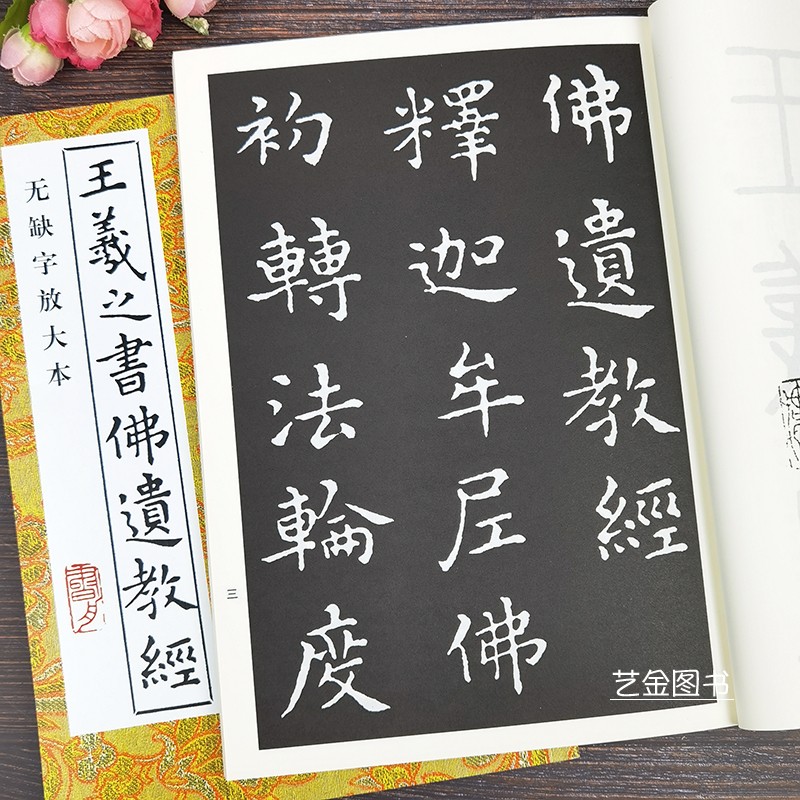 王羲之書佛遺教經
无缺字放大本
佛遺教經
釋迦牟尼佛
初轉法輪度
三
艺金图书